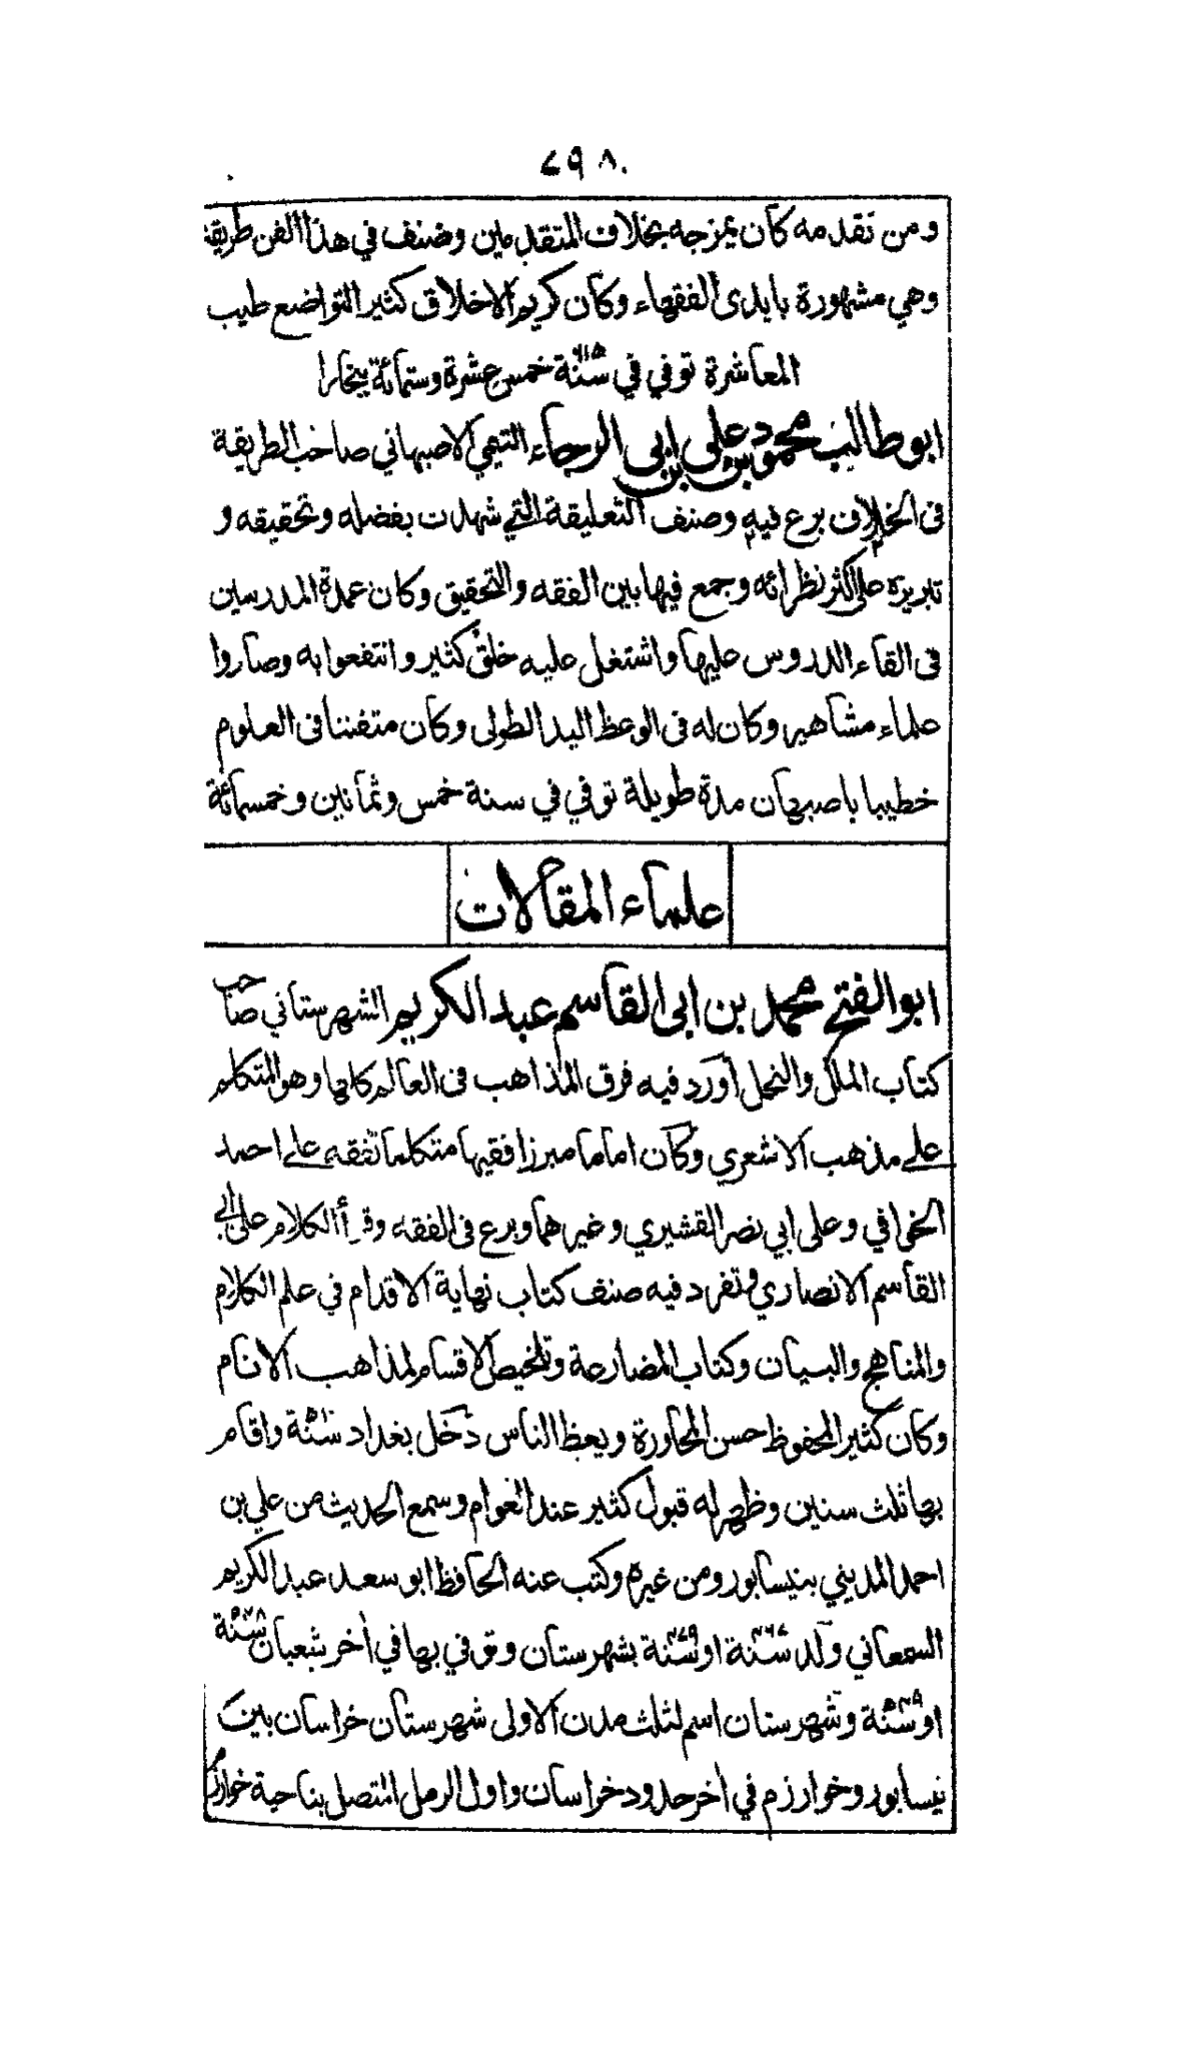 ٧٩٨
ومن تقدمه كان يمزجه بخلاف المتقدمين وصنف في هذا الفن طريقة
وهي مشهورة بايدى الفقهاء وكان كريم الاخلاق كثير التواضع طيب
المعاشرة توفي في سنة ٦١٥ خمس عشرة وستمائة ببخارا
ابو طالب محمود بن علي بن ابى الرجاء التيمي الاصبهاني صاحب الطريقة
فى الخلاف برع فيه وصنف التعليقة التي شهدت بفضله وتحقيقه و
تبريزه على اكثر نظرائه وجمع فيها بين الفقه والتحقيق وكان عمدة المدرسين
فى القاء الدروس عليها واشتغل عليه خلق كثير وانتفعوا به وصاروا
علماء مشاهير وكان له فى الوعظ اليد الطولى وكان متفننا فى العلوم
خطيبا باصبهان مدة طويلة توفي في سنة خمس وثمانين وخمسمائة
علماء المقالات
ابو الفتح محمد بن ابى القاسم عبد الكريم الشهرستاني صاحب
كتاب الملل والنحل اورد فيه فرق المذاهب فى العالم كلها وهو المتكلم
على مذهب الاشعري وكان اماما مبرزا فقيها متكلما تفقه على احمد
الخوافي وعلى ابي نصر القشيري وغيرهما وبرع فى الفقه وقرأ الكلام على ابي
القاسم الانصاري وتفرد فيه صنف كتاب نهاية الاقدام في علم الكلام
والمناهج والبيان وكتاب المضارعة وتلخيص الاقسام لمذاهب الانام
وكان كثير المحفوظ حسن المحاورة ويعظ الناس دخل بغداد سنة ٥١٠ واقام
بها ثلث سنين وظهر له قبول كثير عند العوام وسمع الحديث من علي بن
احمد المديني بنيسابور ومن غيره وكتب عنه الحافظ ابو سعد عبد الكريم
السمعاني ولد سنة ٤٦٧ او سنة ٤٧٩ بشهرستان وتوفي بها في اخر شعبان سنة ٥٤٨
او سنة ٥٤٩ وشهرستان اسم لثلث مدن الاولى شهرستان خراسان بين
نيسابور وخوارزم في اخر حدود خراسان واول الرمل المتصل بناحية خوارزم